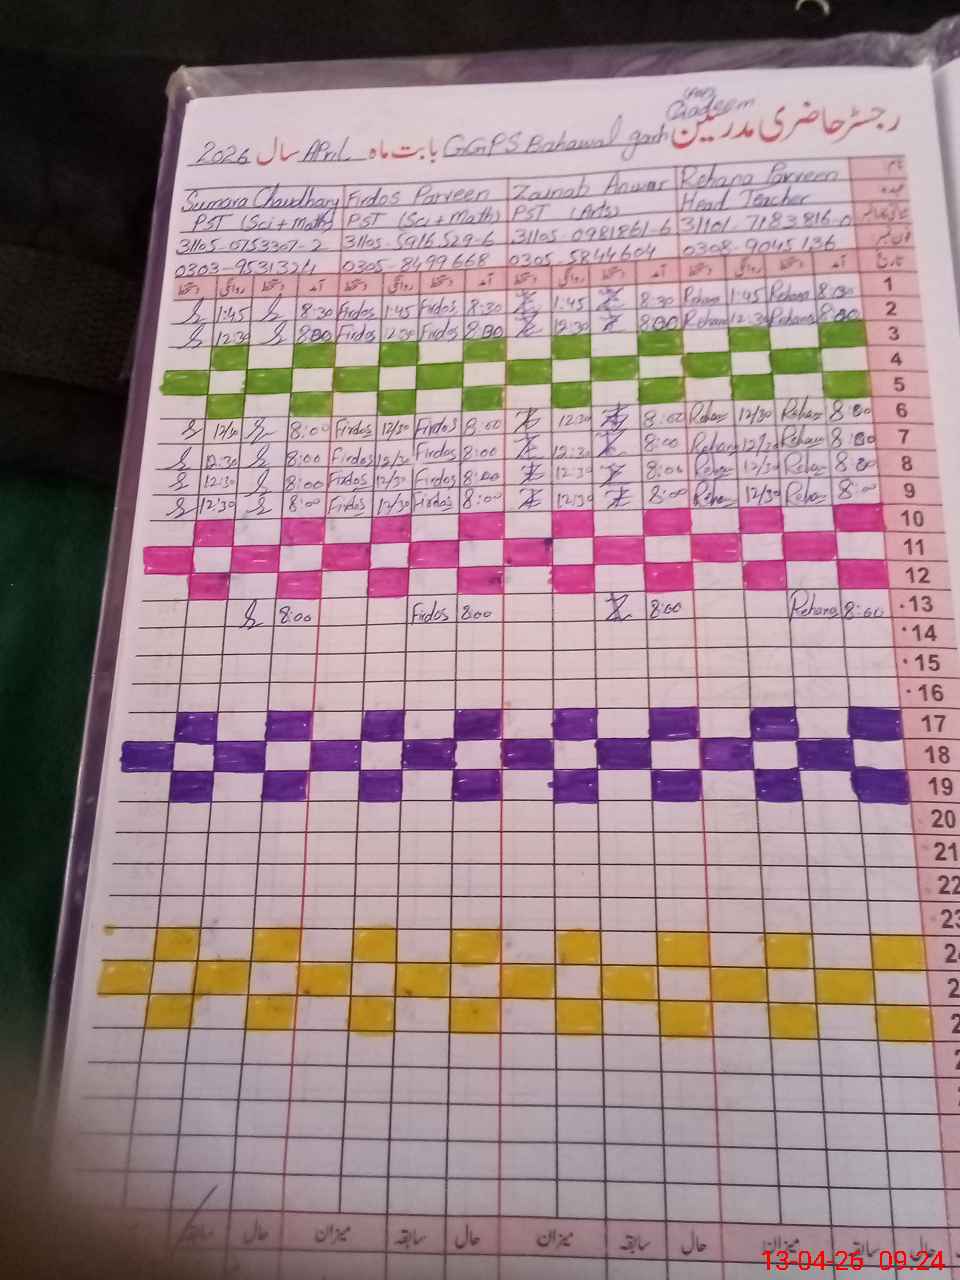 رجسٹر حاضری مدرسین
Qadeem
GGPS Bahawal garh بابت ماہ April سال 2026
نام
Sumara Chaudhary Firdos Parveen Zainab Anwar Rehana Parveen
عہدہ
PST (Sci + Math) PST (Sci + Math) PST (Arts) Head Teacher
31105-0753307-2 31105-5916529-6 31105-0981861-6 31101-7183816-0
0303-9531324 0305-8499668 0305-5844604 0308-9045136
تاریخ
دستخط روانگی دستخط آمد دستخط روانگی دستخط آمد دستخط روانگی دستخط آمد دستخط روانگی دستخط آمد
1:45 8:30 Firdos 1:45 Firdos 8:30 1:45 8:30 Rehana 1:45 Rehana 8:30 1
12:30 8:00 Firdos 12:30 Firdos 8:00 12:30 8:00 Rehana 12:30 Rehana 8:00 2
3
4
5
12/30 8:00 Firdos 12/30 Firdos 8:00 12:30 8:00 Rehana 12/30 Rehana 8:00 6
12:30 8:00 Firdos 12/30 Firdos 8:00 12:30 8:00 Rehana 12/30 Rehana 8:00 7
12:30 8:00 Firdos 12/30 Firdos 8:00 12:30 8:00 Rehana 12/30 Rehana 8:00 8
12:30 8:00 Firdos 12/30 Firdos 8:00 12:30 8:00 Rehana 12/30 Rehana 8:00 9
10
11
12
8:00 Firdos 8:00 8:00 Rehana 8:00 13
14
15
16
17
18
19
20
21
22
23
سابقہ حال میزان سابقہ حال میزان سابقہ حال میزان سابقہ حال
13-04-26 09:24